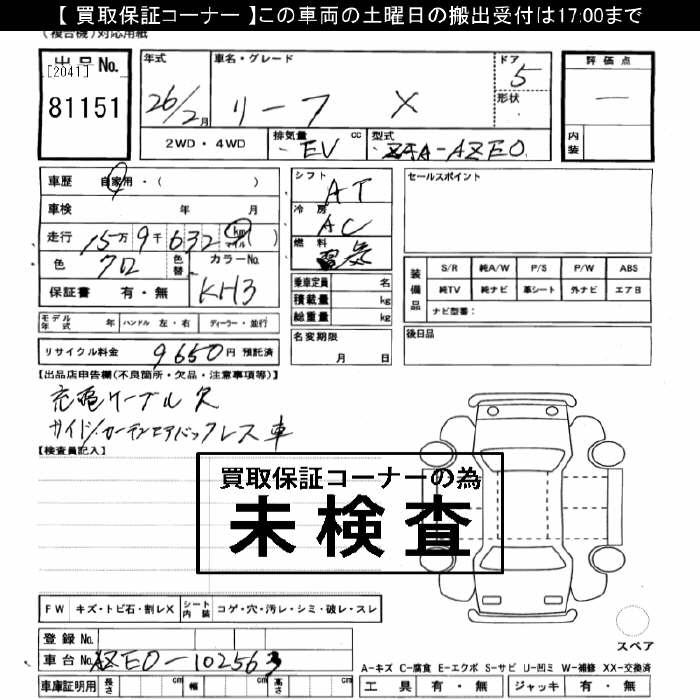 【 買取保証コーナー 】この車両の土曜日の搬出受付は17:00まで
(複合機)対応用紙
出品No.
[2041]
81151
年式
26/2月
車名・グレード
リーフ X
ドア
5
形状
2WD・4WD
排気量 EV cc
型式 ZAA-AZE0
評価点
―
内装
車歴 自家用・( )
車検 年 月
走行 15万9千632 km マイル ( )
色 クロ
色替
カラーNo.
KH3
保証書 有・無
シフト AT
冷房 AC
燃料 電気
乗車定員 名
積載量 kg
総重量 kg
セールスポイント
装備品
S/R 純A/W P/S P/W ABS
純TV 純ナビ 革シート 外ナビ エアB
ナビ型番:
モデル年式 年 ハンドル 左・右 ディーラー・並行
名変期限
月 日
後日品
リサイクル料金 9650円 預託済
【出品店申告欄(不良箇所・欠品・注意事項等)】
充電ケーブル欠
サイド/カーテンエアバックレス車
【検査員記入】
買取保証コーナーの為
未検査
FW キズ・トビ石・割レX
シート内装 コゲ・穴・汚レ・シミ・破レ・スレ
登録No.
車台No. AZE0-102563
スペア
A-キズ C-腐食 E-エクボ S-サビ U-凹ミ W-補修 XX-交換済
車庫証明用 長さ cm 幅 cm 高さ cm
工具 有・無 ジャッキ 有・無